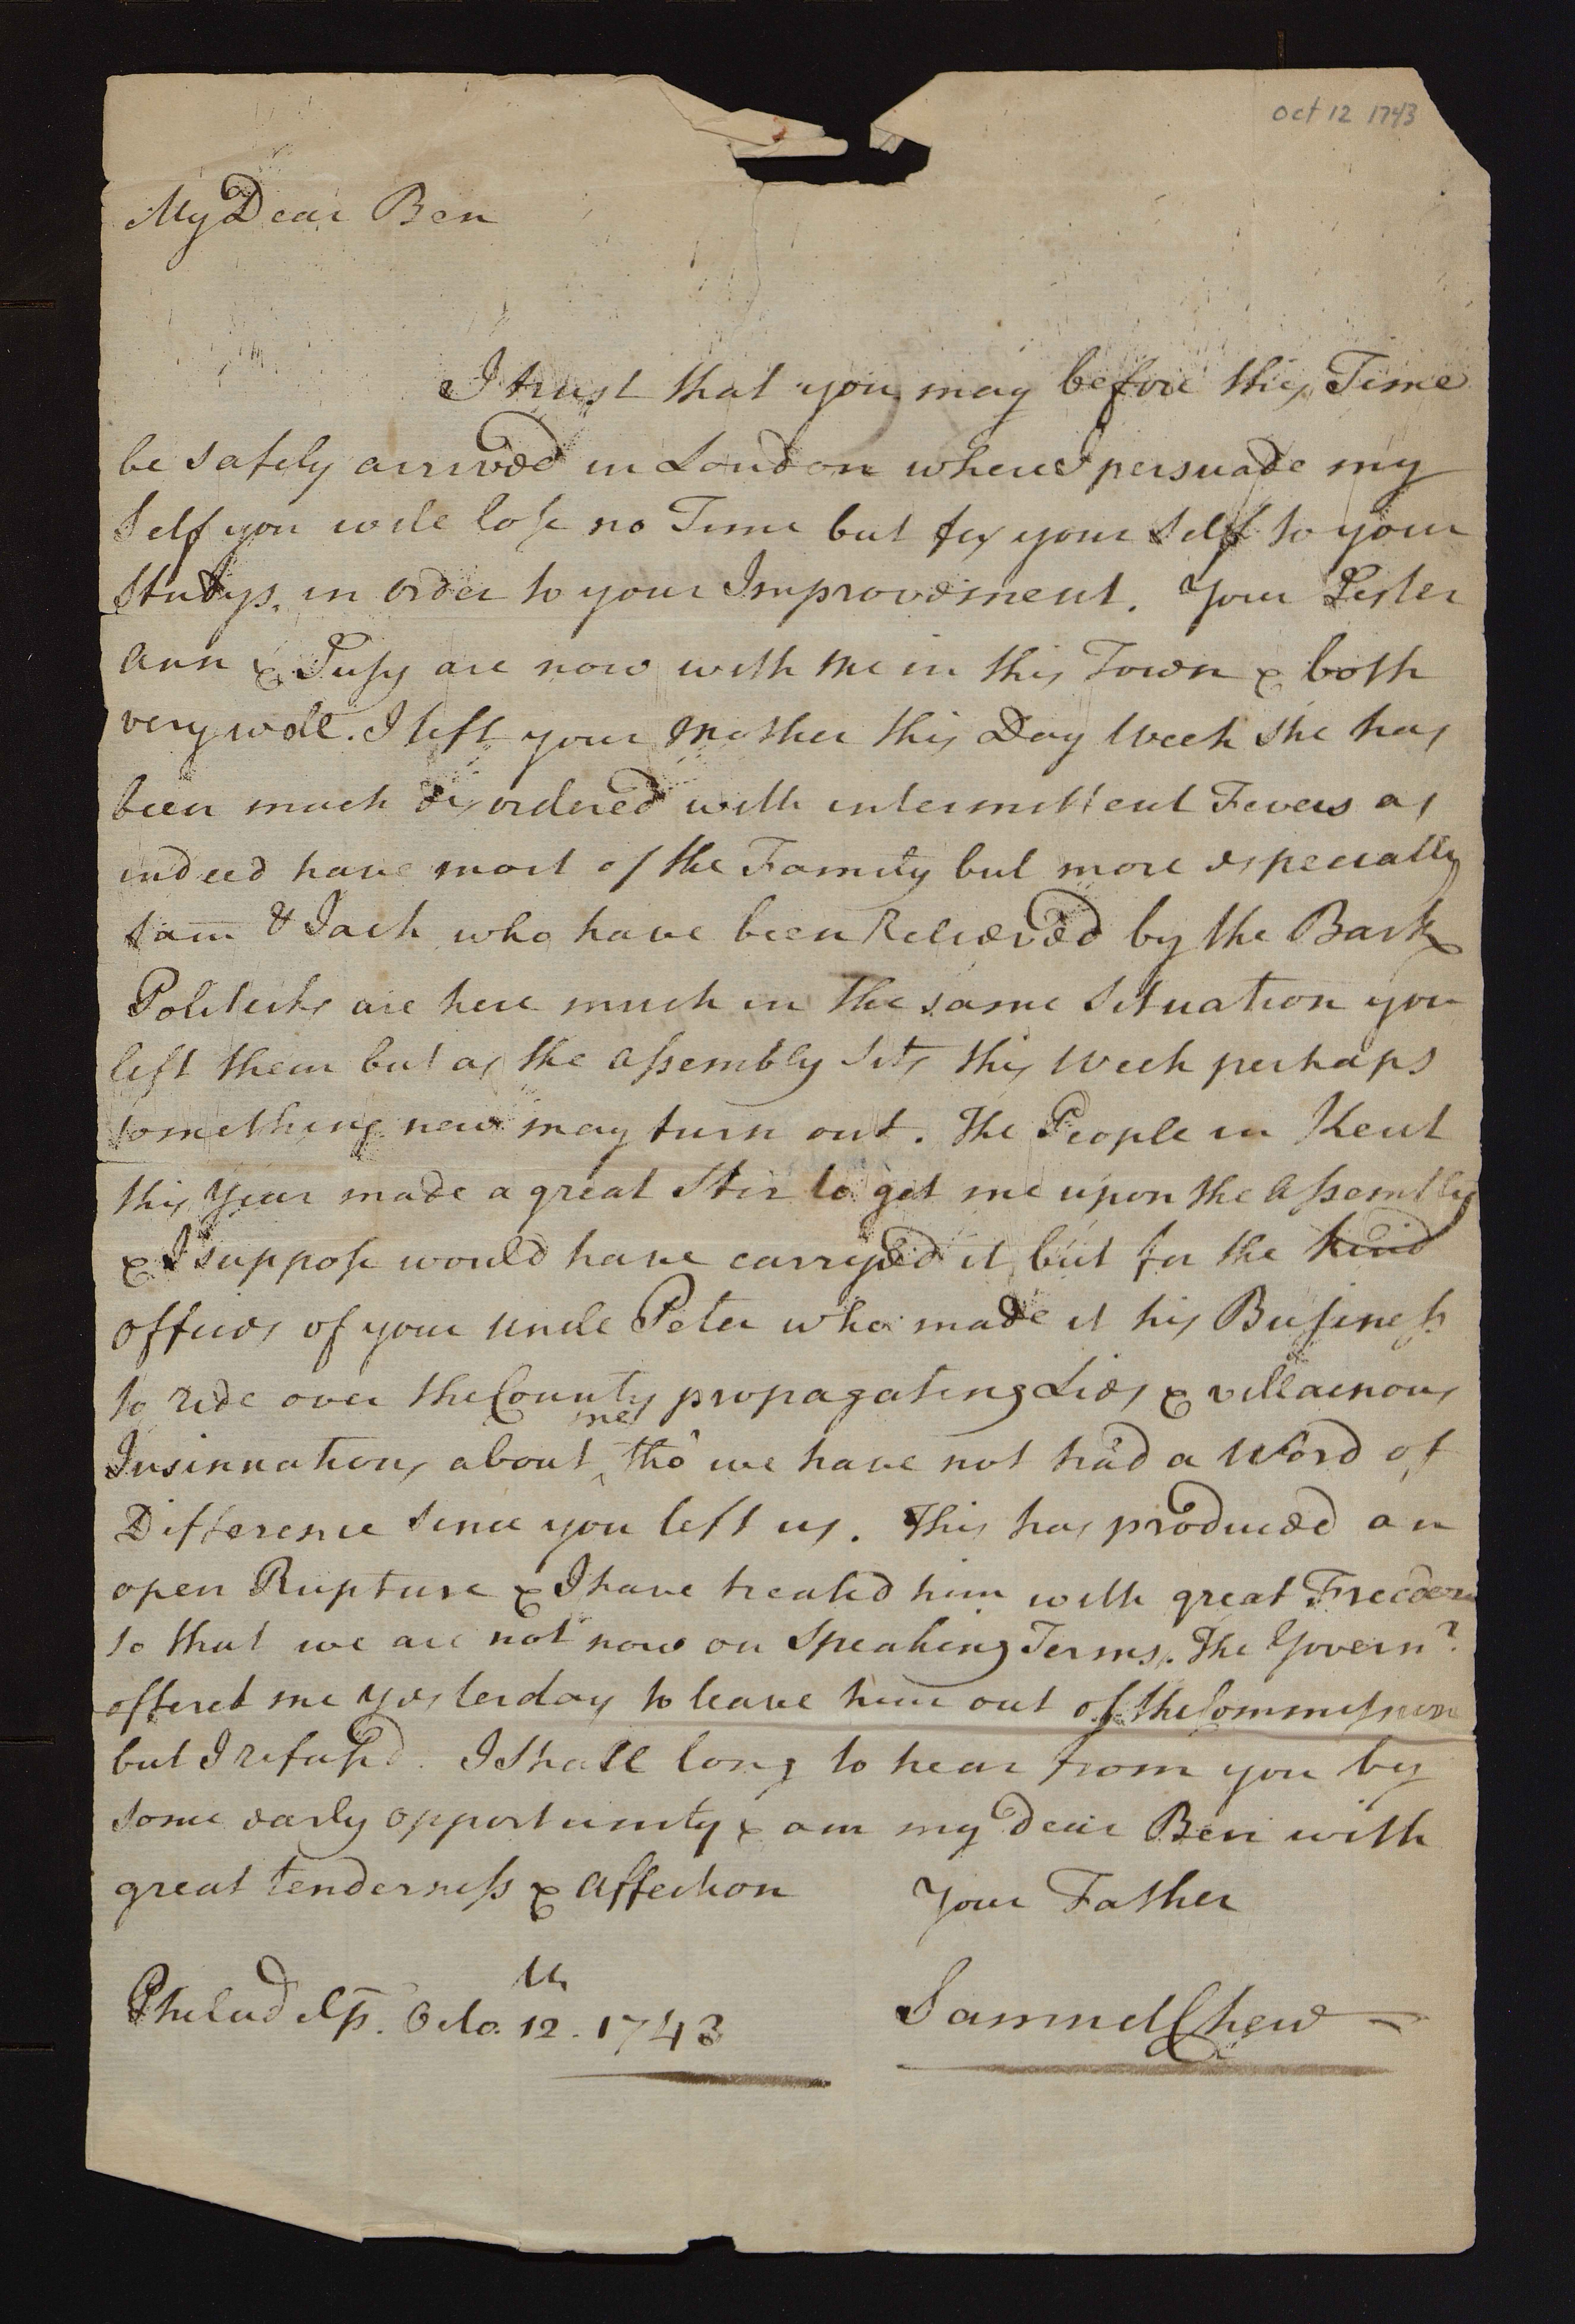 oct 12 1743
My Dear Ben
I trust that you may before this Time
be safely arrived in London where I persuade my
Self you will lose no Time but fix your Self to your
Studys, in order to your Improvement. Your Sister
Ann & Susy are now with me in this Town & both
very well. I left your Mother this Day Week she has
been much disordered with intermittent Fevers as
indeed have most of the Family but more especially
Sam & Jack who have been Relieved by the Bark
Politicks are here much in the same Situation you
left them but as the Assembly Sits this Week perhaps
something new may turn out. The People in Kent
this Year made a great Stir to get me upon the Assembly
& I suppose would have carryed it but for the kind
offices of your uncle Peter who made it his Business
to ride over the County propagating Lies & villainous
Insinuations about me tho' we have not had a Word of
Difference Since you left us. This has produced an
open Rupture & I have treated him with great Freedom
so that we are not now on Speaking Terms. The Governr.
offered me yesterday to leave him out of the Commission
but I refused. I Shall long to hear from you by
some early opportunity & am my dear Ben with
great tenderness & affection Your Father
Philadelp. Octo. 12th. 1743 Samuel Chew